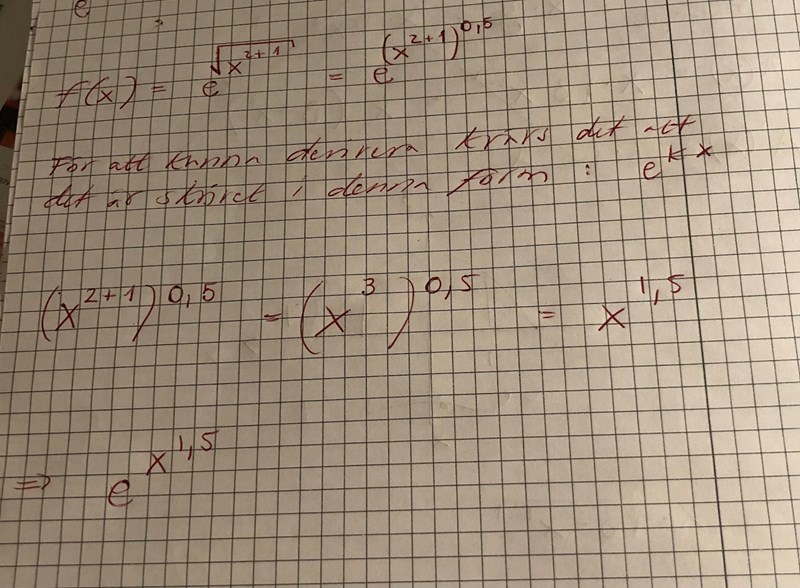 e
f(x) = e^√(x^(2+1)) = e^((x^(2+1))^0,5)
För att kunna derivera krävs det att
det är skrivet i denna form : e^(kx)
(x^(2+1))^0,5 = (x^3)^0,5 = x^1,5
⇒ e^(x^1,5)